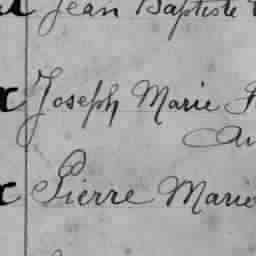 Jean Baptiste
Joseph Marie
Pierre Marie